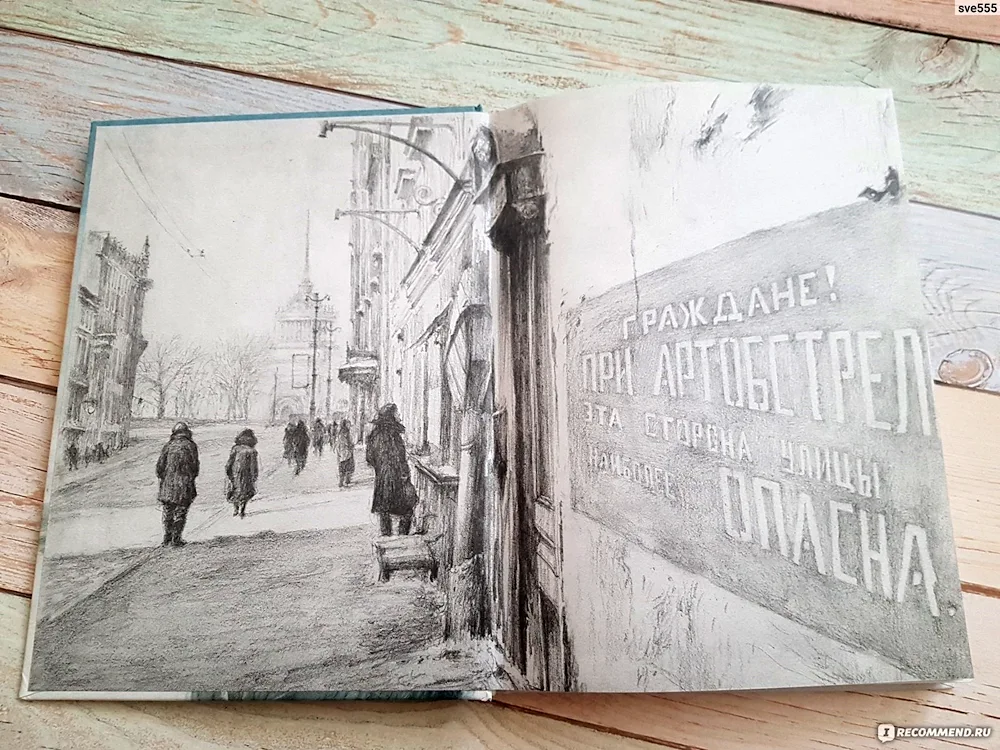 sve555
ГРАЖДАНЕ!
ПРИ АРТОБСТРЕЛ
ЭТА СТОРОНА УЛИЦЫ
НАИБОЛЕЕ ОПАСНА
I RECOMMEND.RU